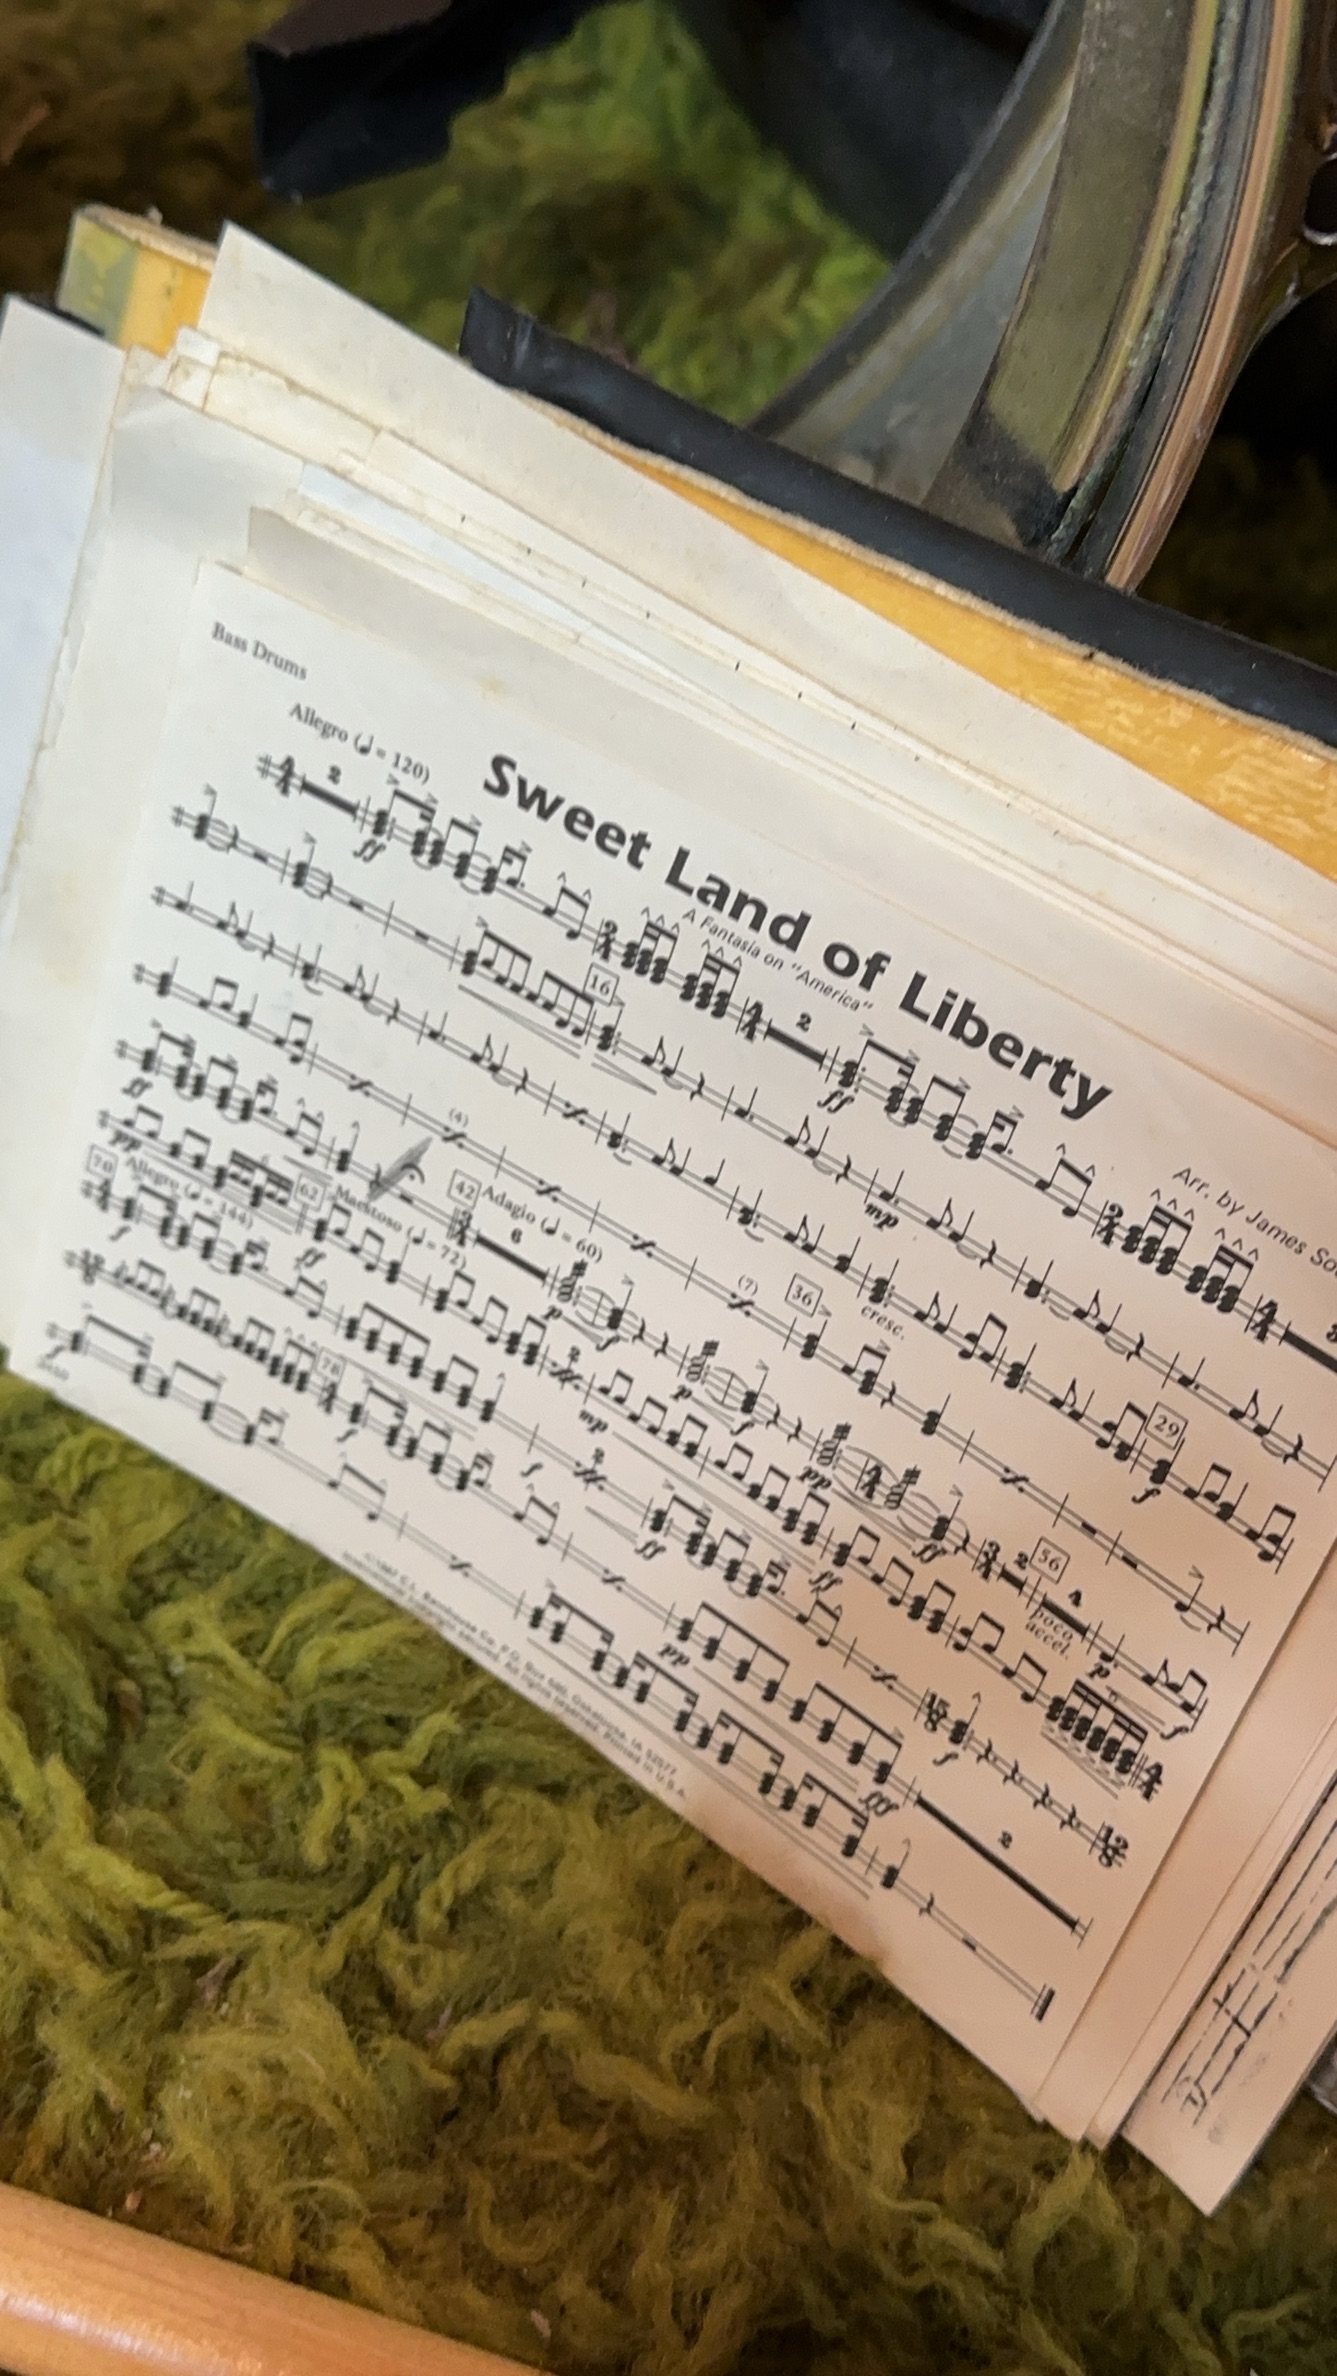 Bass Drums
Sweet Land of Liberty
A Fantasia on "America"
Arr. by James
Allegro (♩ = 120)
2
ff
2
ff
16
mp
cresc.
29
f
(4)
(7)
36
ff
42 Adagio (♩ = 60)
6
p
f
p
f
pp
ff
2
56
4
poco accel.
p
f
pp
62 Maestoso (♩ = 72)
ff
2
mp
ff
70 Allegro (♩ = 144)
f
f
2
ff
f
78
f
pp
fff
2
f